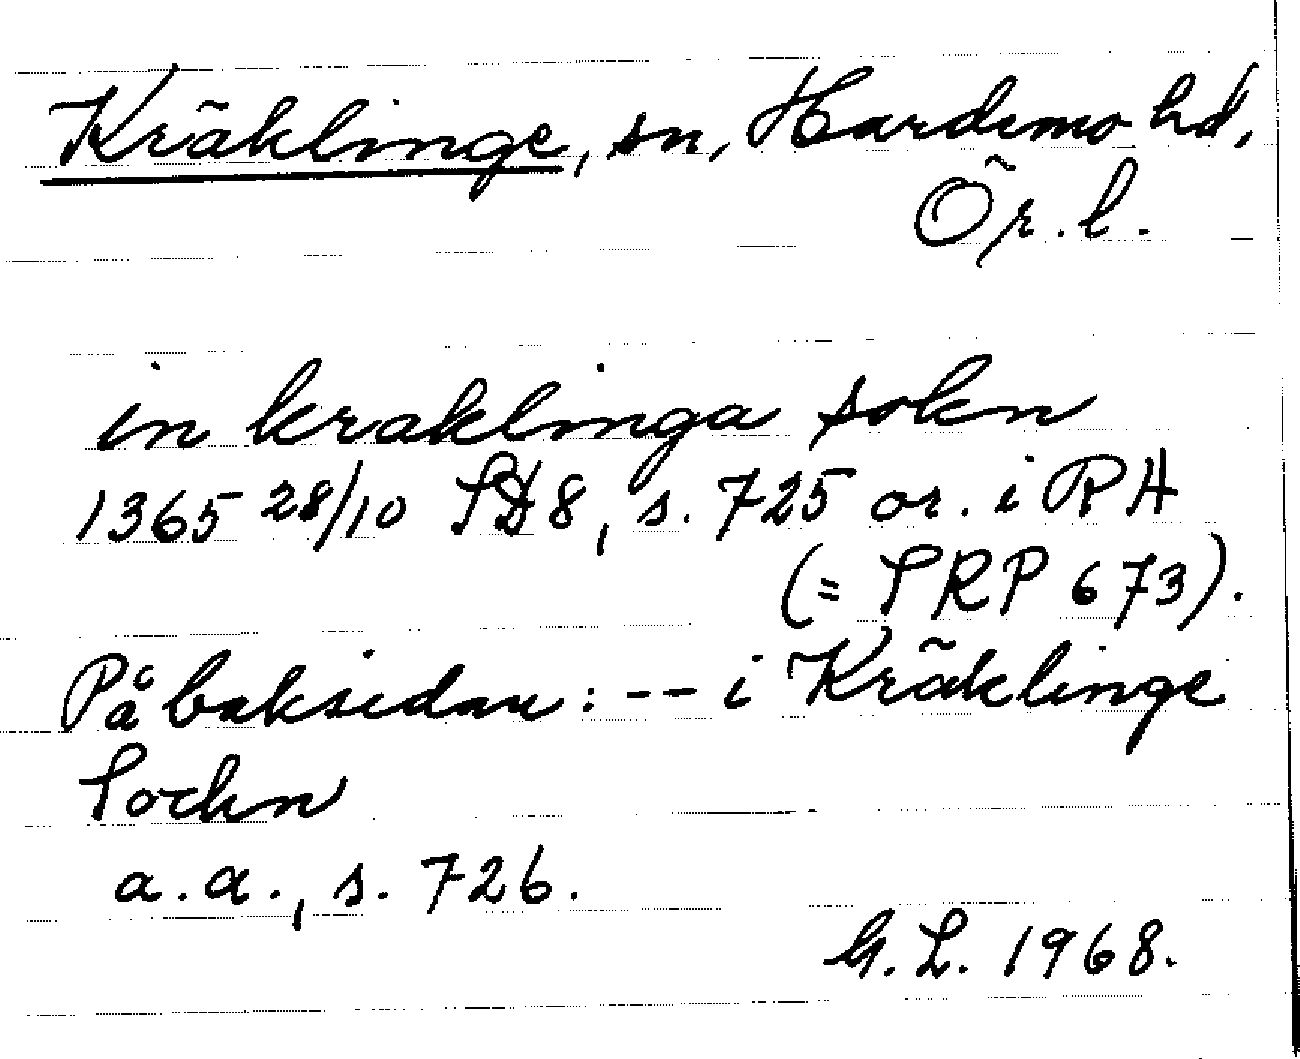 Kräklinge, sn, Hardemo hd,
Ör. l.
in kraklinga sokn
1365 28/10 SD 8, s. 725 or. i RA
(= SRP 673).
På baksidan: -- i Kräklinge
Sockn
a. a., s. 726.
G. L. 1968.